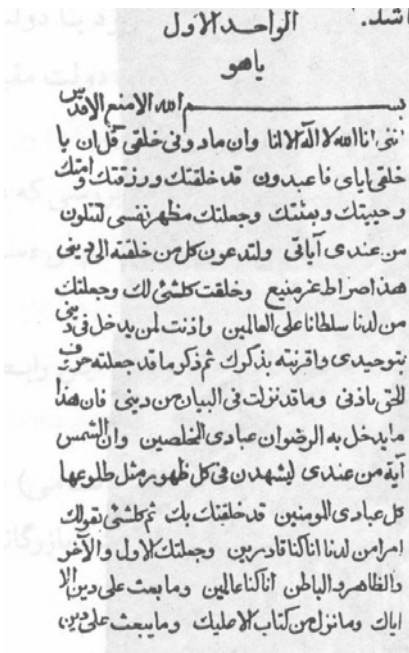 الواحد الاول
ياهو
بسم الله الامنع الاقدس
اننى انا الله لا اله الا انا وان مادونى خلقى قل ان يا
خلقى اياى فاعبدون قد خلقتك ورزقتك وامتك
وحييتك وبعثتك وجعلتك مظهر نفسى لتتلون
من عندى آياتى ولتدعون كل من خلقته الى دينى
هذا صراط عز منيع وخلقت كلشئ لك وجعلتك
من لدنا سلطانا على العالمين واذنت لمن يدخل فى دينى
بتوحيدى واقرنته بذكرك ثم ذكر ما قد جعلته حروف
الحى باذنى وما قد نزلت فى البيان من دينى فان هذا
ما يدخل به الرضوان عبادى المخلصين وان الشمس
آية من عندى ليشهدن فى كل ظهور مثل طلوعها
كل عبادى المومنين قد خلقتك بك ثم كلشئ بقولك
امرا من لدنا انا كنا قادرين وجعلتك الاول والآخر
والظاهر والباطن انا كنا عالمين وما بعث على دين الا
اياك وما نزل من كتاب الا عليك وما يبعث على دين